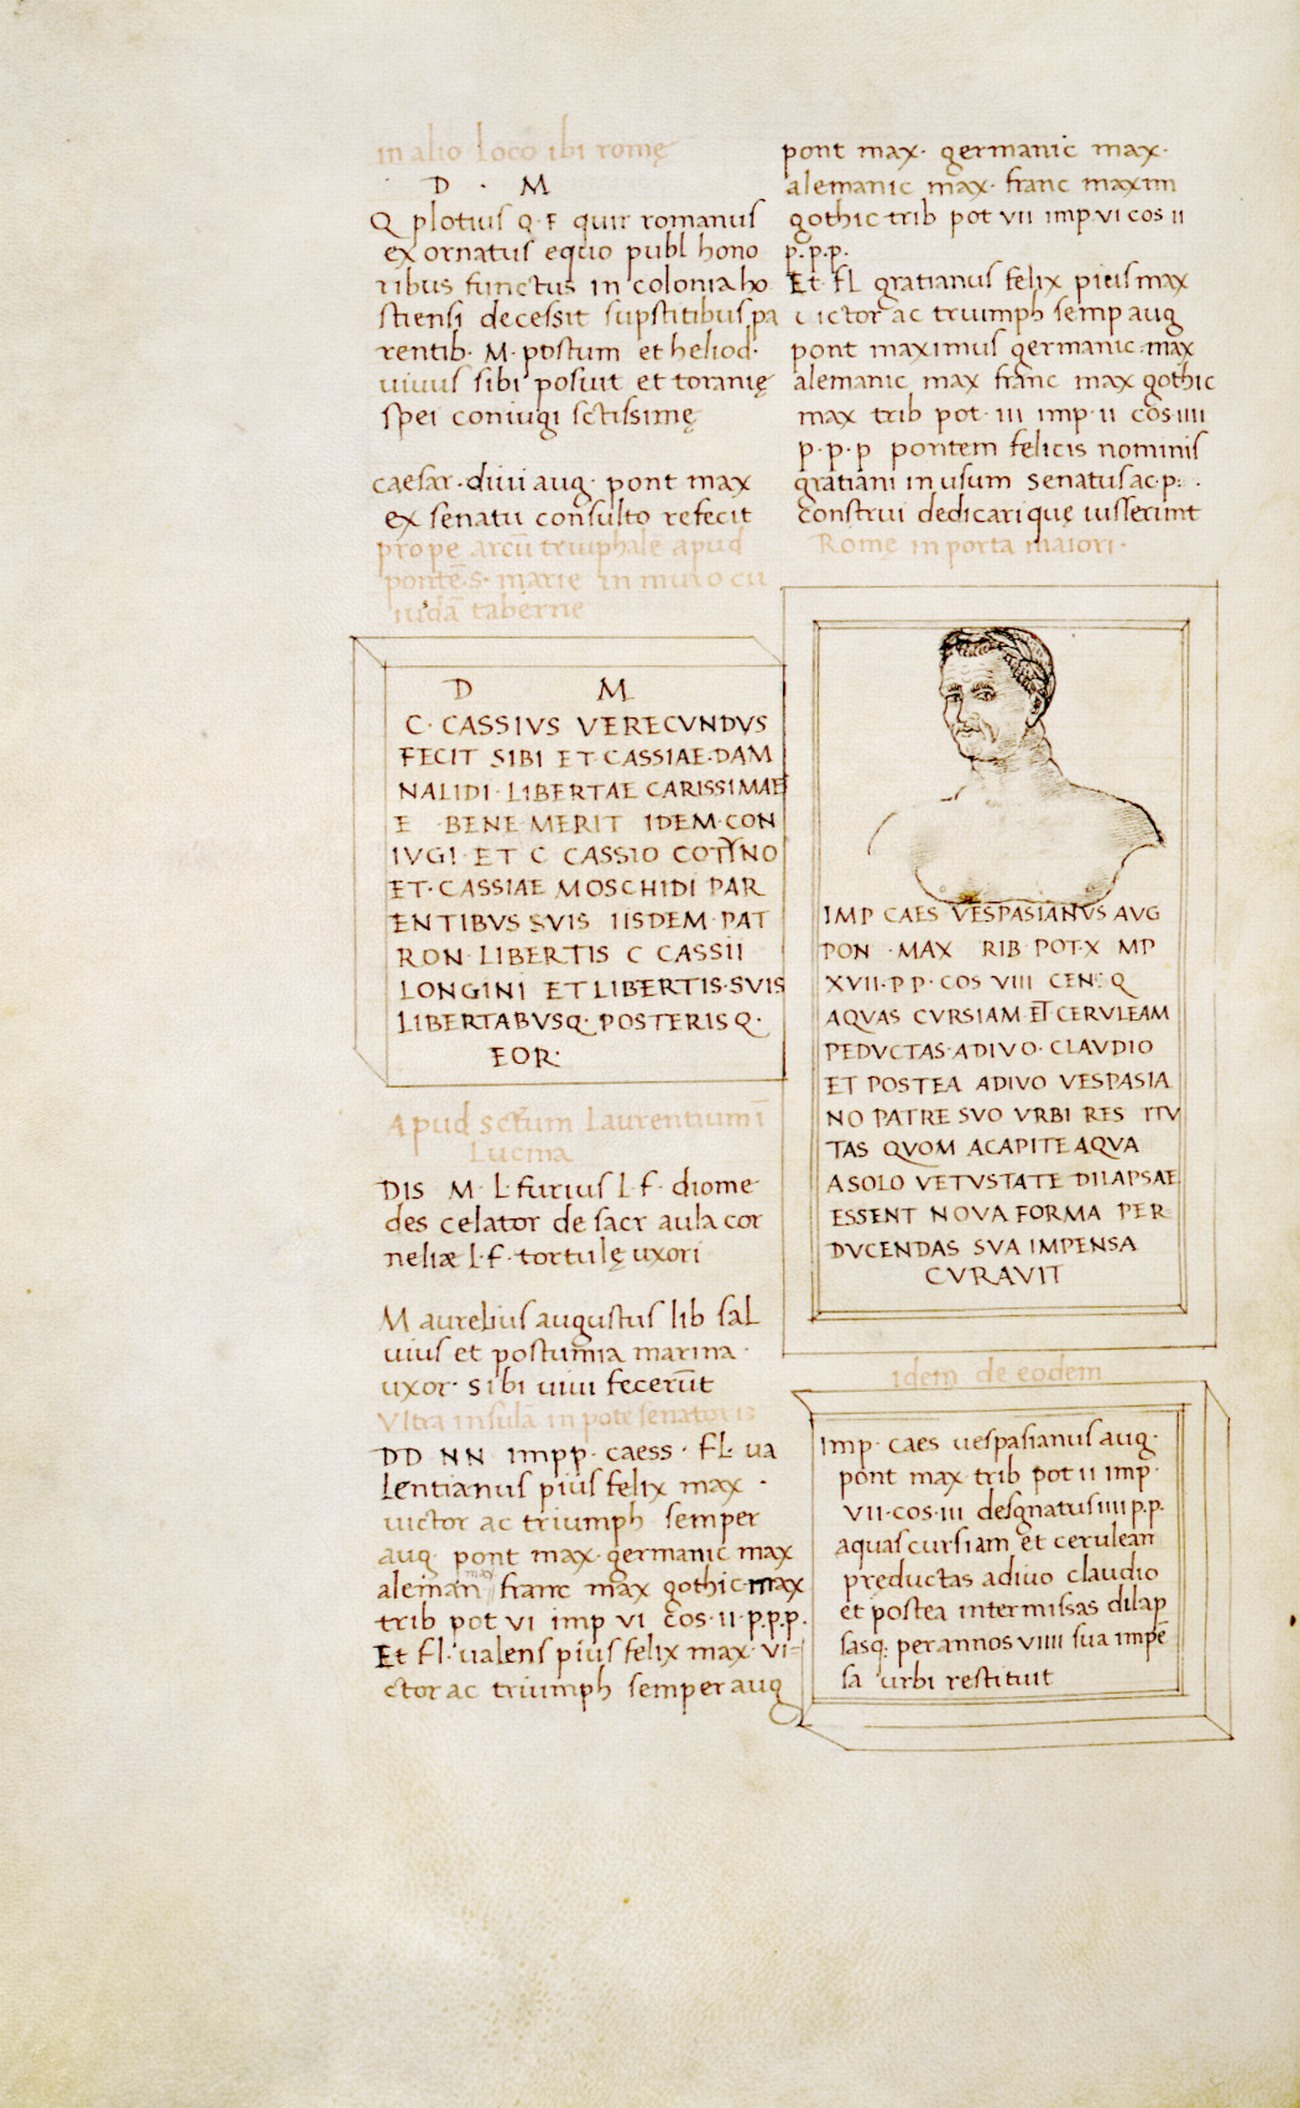 in alio loco ibi romę
D · M
Q plotius Q·F quir romanus
exornatus equo publ hono
ribus functus in colonia ho
stiensi decessit supstitibus pa
rentib· M· postum et heliod·
uiuus sibi posuit et toranię
spei coniugi sctissimę
caesar·diui aug· pont max
ex senatu consulto refecit
prope arcū triūphalē apud
pontē·s· marie in muro cu
iudā taberne
D M
C· CASSIVS VERECVNDVS
FECIT SIBI ET CASSIAE·DAM
NALIDI· LIBERTAE CARISSIMAE
E ·BENE MERIT IDEM·CON
IVGI·ET C CASSIO COTYNO
ET·CASSIAE MOSCHIDI PAR
ENTIBVS SVIS IISDEM·PAT
RON·LIBERTIS C CASSII
LONGINI ET LIBERTIS·SVIS
LIBERTABVSQ·POSTERISQ·
EOR·
Apud sctum Laurentium ī
Lucina
DIS M· L·furius l·f· diome
des celator de sacr aula cor
neliæ l·f·tortulę uxori
M aurelius augustus lib sal
uius et postumia marina·
uxor· sibi uiui fecerūt
Vltra insulā in pōte senatoris
DD NN impp· caess· FL· ua
lentianus pius felix max ·
uictor ac triumph semper
aug· pont max·germanic max
aleman max franc max gothic·max
trib pot VI imp VI cos·II·p.p.p.
Et fl·ualens pius felix max·vi-
ctor ac triumph semper aug
pont max· germanic max·
alemanic max· franc maxim
gothic trib pot VII imp·VI cos II
p.p.p.
Et fL gratianus felix pius max
uictor ac triumph semp aug
pont maximus germanic·max
alemanic max franc max gothic
max trib pot·III imp·II cos·IIII
p·p·p pontem felicis nominis
gratiani in usum senatus ac·p: ·
construi dedicarique iusserunt
Romę in porta maiori·
IMP CAES VESPASIANVS AVG
PON ·MAX RIB POT·X MP
XVII·P P·COS VIII CEN: Q
AQVAS CVRSIAM·ET CERVLEAM
PEDVCTAS·ADIVO·CLAVDIO
ET POSTEA ADIVO VESPASIA
NO PATRE SVO VRBI RES ITV
TAS QVOM ACAPITE AQVA
ASOLO VETVSTATE DILAPSAE
ESSENT NOVA FORMA PER
DVCENDAS SVA IMPENSA
CVRAVIT
idem de eodem
Imp· caes uespasianus aug·
pont max trib pot II imp·
VII·cos·III desgnatus IIII p.p.
aquas cursiam et ceruleam
preductas adiuo claudio
et postea intermissas dilap
sasq: per annos VIIII sua impē
sa urbi restituit